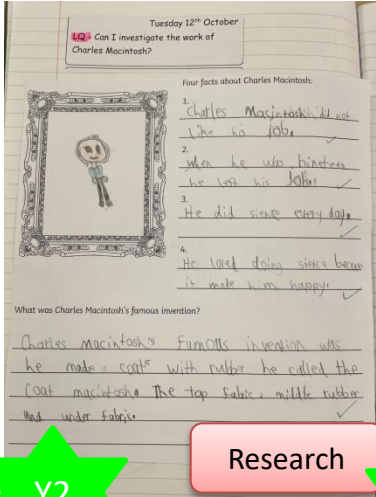 Tuesday 12th October
LQ - Can I investigate the work of
Charles Macintosh?
Four facts about Charles Macintosh:
1.
Charles Macintosh did not
like his job.
2.
when he was nineteen
he left his Job.
3.
He did sience every day.
4.
He loved doing sience becuse
it made him happy.
What was Charles Macintosh's famous invention?
Charles macintosh's famous invention was
he made a coats with rubber he called the
coat macintosh. The top fabric, middle rubber
and under fabric.
Y2
Research